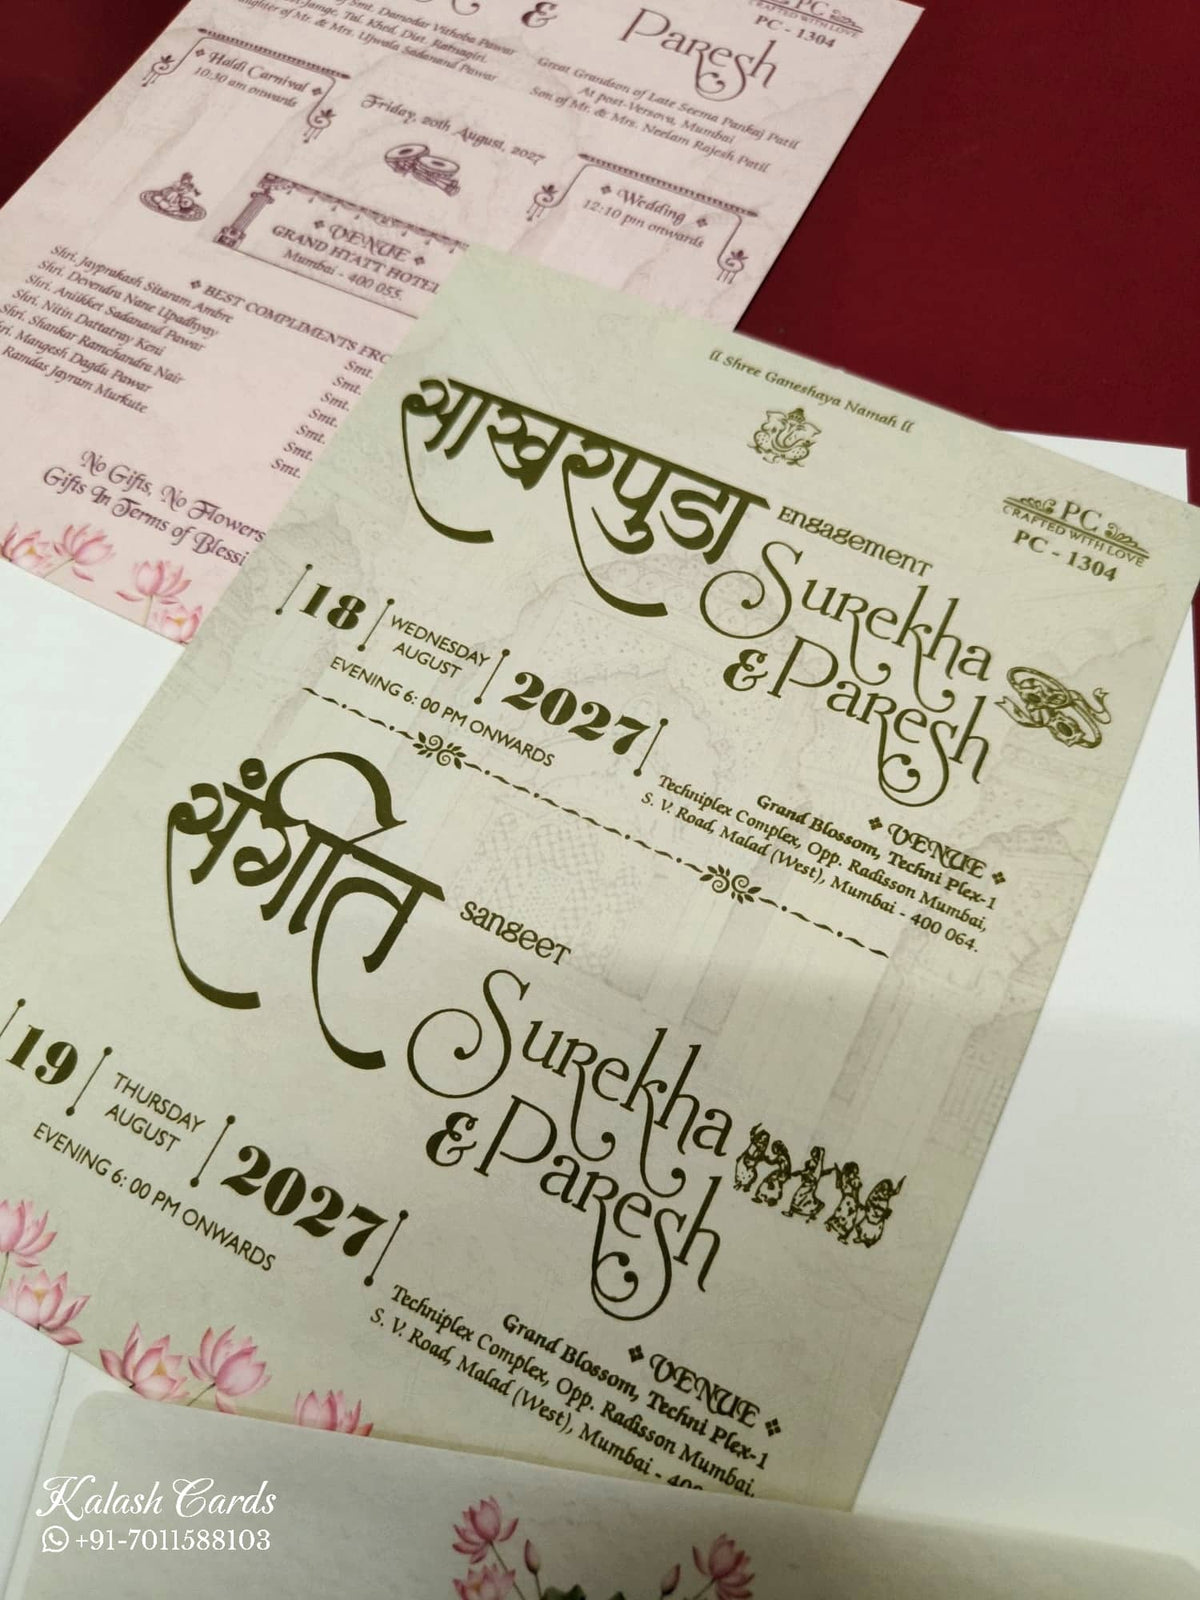 &
Paresh
CRAFTED WITH LOVE
PC - 1304
of Smt. Damodar Vithoba Pawar
Tal. Khed, Dist. Ratnagiri.
of Mr. & Mrs. Ujwala Sadanand Pawar
Great Grandson of Late Seema Pankaj Patil
At post-Versova, Mumbai
Son of Mr. & Mrs. Neelam Rajesh Patil
Haldi Carnival
10:30 am onwards
Friday, 20th August, 2027
Wedding
12:10 pm onwards
VENUE
GRAND HYATT HOTEL
Mumbai - 400 055.
BEST COMPLIMENTS
Shri. Jayprakash Sitaram Ambre
Shri. Devendra Nane Upadhyay
Shri. Aniikket Sadanand Pawar
Shri. Nitin Dattatray Keni
Shri. Shankar Ramchandra Nair
Mangesh Dagdu Pawar
Ramdas Jayram Murkute
Smt.
Smt.
Smt.
Smt.
Smt.
Smt.
Smt.
No Gifts, No Flowers
Gifts In Terms of
ll Shree Ganeshaya Namah ll
साखरपुडा
Engagement
PC
CRAFTED WITH LOVE
PC - 1304
Surekha
& Paresh
18
WEDNESDAY
AUGUST
2027
EVENING 6: 00 PM ONWARDS
VENUE
Grand Blossom, Techni Plex-1
Techniplex Complex, Opp. Radisson Mumbai,
S. V. Road, Malad (West), Mumbai - 400 064.
संगीत
sangeet
Surekha
& Paresh
19
THURSDAY
AUGUST
2027
EVENING 6: 00 PM ONWARDS
VENUE
Grand Blossom, Techni Plex-1
Techniplex Complex, Opp. Radisson Mumbai,
S. V. Road, Malad (West), Mumbai -
Kalash Cards
+91-7011588103